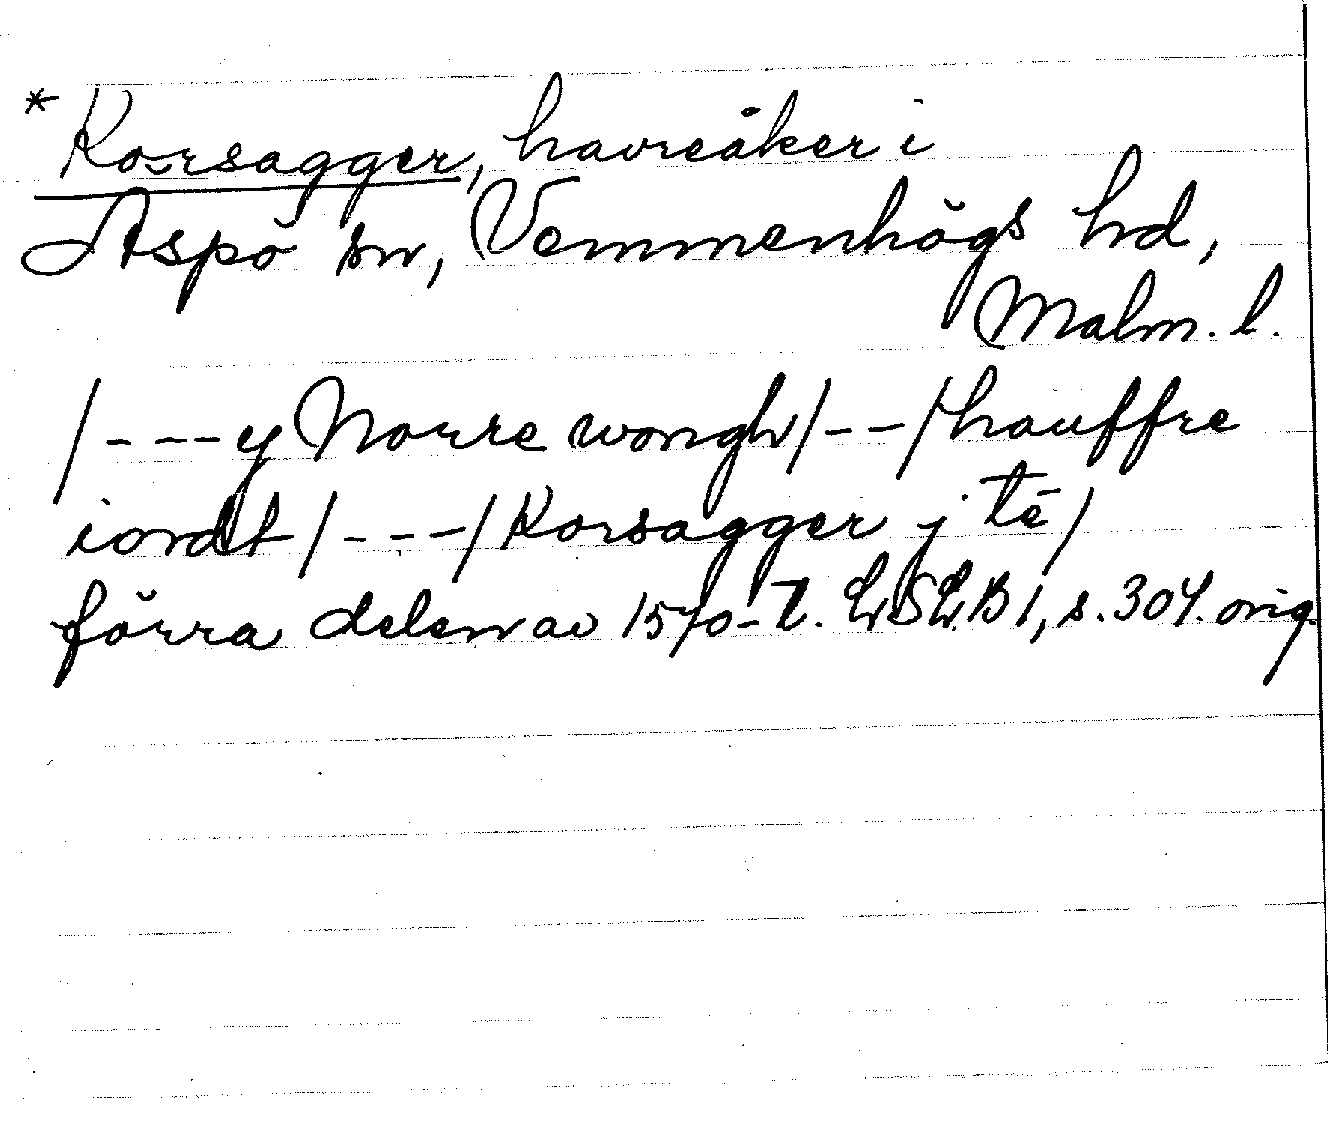 * Korsagger, havreåker i
Aspö sn, Vemmenhögs hd,
Malm. l.
/---y Norre wongh/--/hauffre
iordt/---/Korsagger j tē/
förra delen av 1570-t. LSLB 1, s. 304. orig.